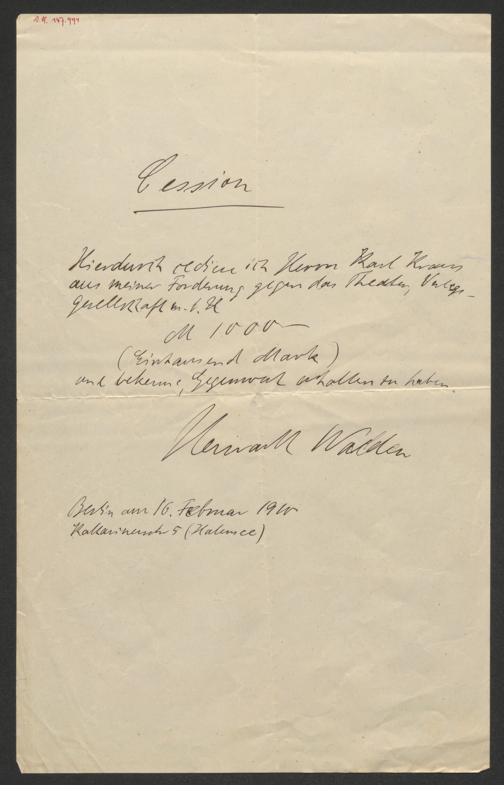 I.N. 147.991
Cession
Hierdurch cediere ich Herrn Karl Kraus
aus meiner Forderung gegen das Theater, Verlags-
gesellschaft m. b. H
M 1000 —
(Eintausend Mark)
und bekenne, Gegenwert erhalten zu haben.
Herwarth Walden
Berlin am 16. Februar 1910
Katharinenstr 5 (Halensee)